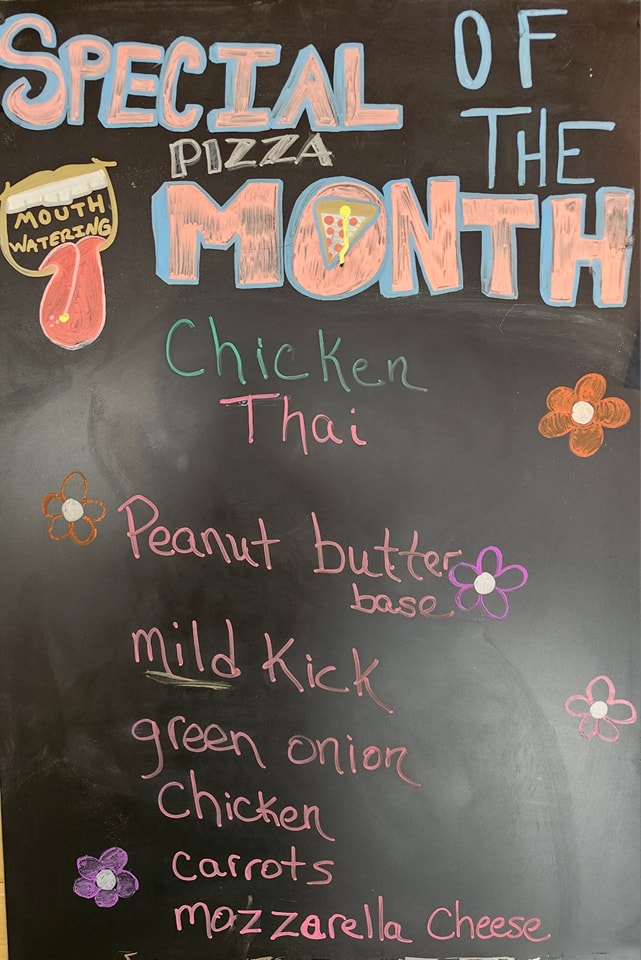 SPECIAL OF
THE
PIZZA
MONTH
MOUTH
WATERING
Chicken
Thai
Peanut butter
base
mild Kick
green onion
Chicken
carrots
mozzarella Cheese